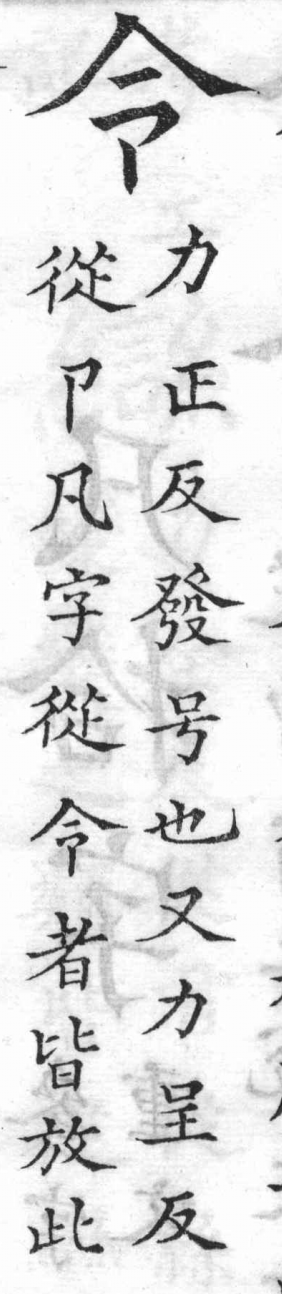 令
力正反發号也又力呈反
從卩凡字從令者皆放此